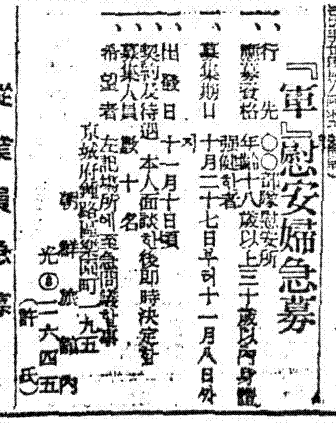 『軍』慰安婦急募
一、行先 ○○部隊慰安所
一、應募資格 年齡十八歲以上三十歲以內身體
强健한者
一、募集期日 十月二十七日부터十一月八日ᄭᅡ
지
一、出發日 十一月十日頃
一、契約及待遇 本人面談한後卽時決定함
一、募集人員 數十名
一、希望者 左記場所에至急問議할事
京城府鍾路區樂園町一九五
朝鮮旅館內
光③二六四五
(許氏)